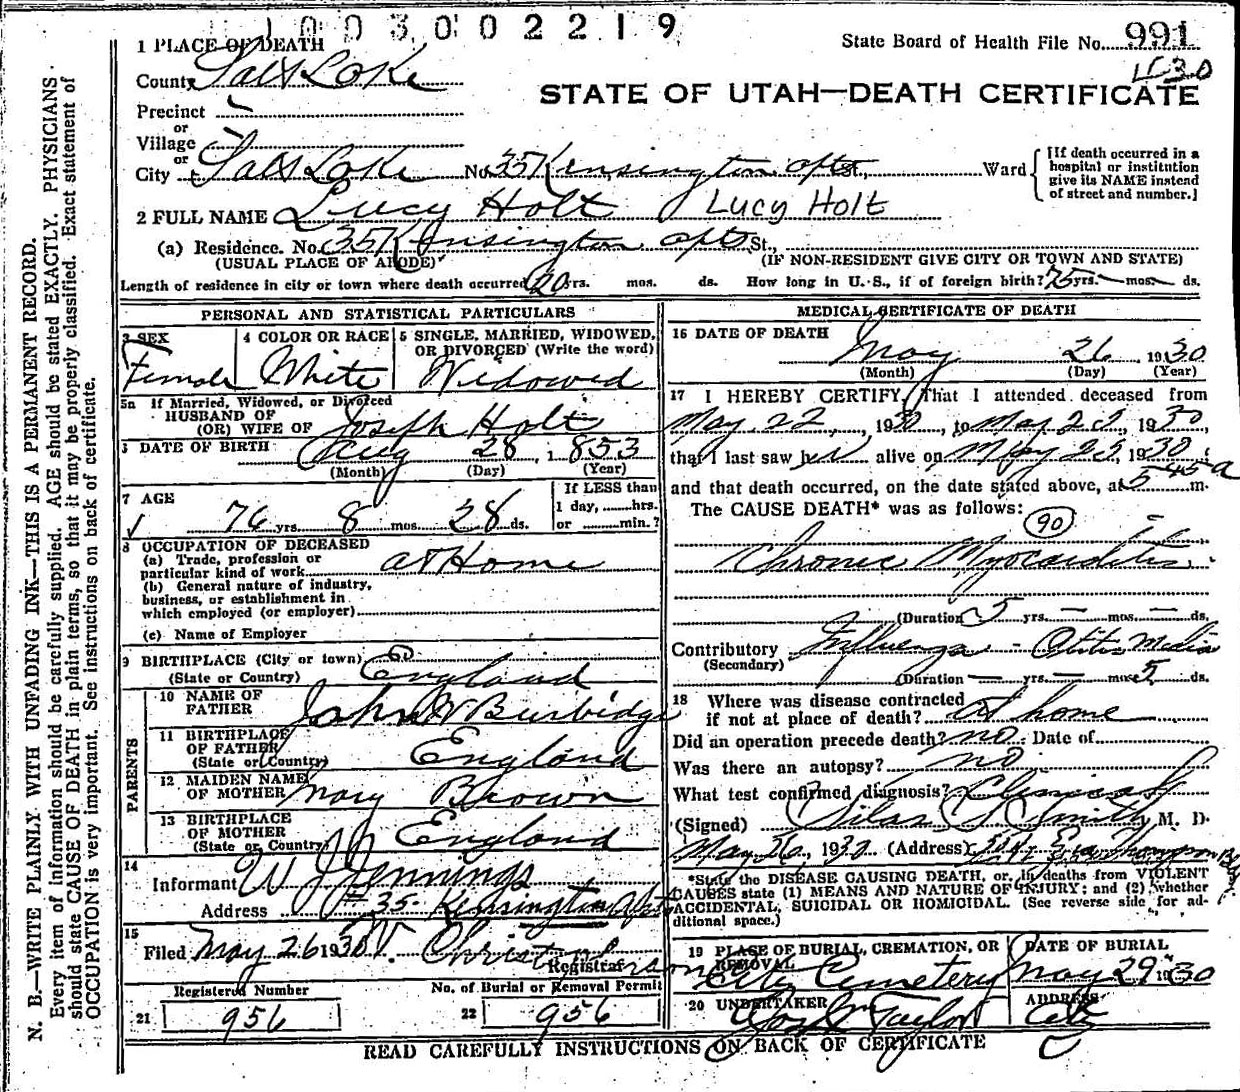 1003002219
State Board of Health File No. 991
1130
1 PLACE OF DEATH
County Salt Lake
STATE OF UTAH—DEATH CERTIFICATE
Precinct
or
Village
or
City Salt Lake No. 35 Kensington apts., Ward
[If death occurred in a
hospital or institution
give its NAME instead
of street and number.]
2 FULL NAME Lucy Holt Lucy Holt
(a) Residence. No. 35 Kensington apts St.,
(USUAL PLACE OF ABODE) (IF NON-RESIDENT GIVE CITY OR TOWN AND STATE)
Length of residence in city or town where death occurred 20 yrs. mos. ds. How long in U. S., if of foreign birth? 75 yrs. — mos. — ds.
PERSONAL AND STATISTICAL PARTICULARS
3 SEX
Female
4 COLOR OR RACE
White
5 SINGLE, MARRIED, WIDOWED,
OR DIVORCED (Write the word)
Widowed
5a If Married, Widowed, or Divorced
HUSBAND OF
(OR) WIFE OF Joseph Holt
6 DATE OF BIRTH Aug 28, 1853
(Month) (Day) (Year)
7 AGE
76 yrs. 8 mos. 28 ds.
If LESS than
1 day, ......hrs.
or ........min.?
8 OCCUPATION OF DECEASED
(a) Trade, profession or
particular kind of work at Home
(b) General nature of industry,
business, or establishment in
which employed (or employer)
(c) Name of Employer
9 BIRTHPLACE (City or town)
(State or Country) England
PARENTS
10 NAME OF
FATHER John W Burbidge
11 BIRTHPLACE
OF FATHER
(State or Country) England
12 MAIDEN NAME
OF MOTHER Mary Brown
13 BIRTHPLACE
OF MOTHER
(State or Country) England
14
Informant W J Jennings
Address #35 Kensington Apts
15
Filed May 26 1930 Christopherson
Registrar
Registered Number
21 956
No. of Burial or Removal Permit
22 956
MEDICAL CERTIFICATE OF DEATH
16 DATE OF DEATH
May 26, 1930
(Month) (Day) (Year)
17 I HEREBY CERTIFY, That I attended deceased from
May 22, 1930, to May 25, 1930,
that I last saw her alive on May 25, 1930;
and that death occurred, on the date stated above, at 5 45 a m.
The CAUSE DEATH* was as follows:
90
Chronic Myocarditis
(Duration) 5 yrs. — mos. — ds.
Contributory Influenza - Otitis Media
(Secondary)
(Duration — yrs. — mos. 5 ds.
18 Where was disease contracted
if not at place of death? At home
Did an operation precede death? no Date of
Was there an autopsy? no
What test confirmed diagnosis? Clinical
(Signed) Silas S Smith M. D.
May 26, 1930 (Address)
*State the DISEASE CAUSING DEATH, or, in deaths from VIOLENT
CAUSES state (1) MEANS AND NATURE OF INJURY; and (2) whether
ACCIDENTAL, SUICIDAL OR HOMICIDAL. (See reverse side for ad-
ditional space.)
19 PLACE OF BURIAL, CREMATION, OR
REMOVAL
City Cemetery
DATE OF BURIAL
May 29 1930
20 UNDERTAKER
Jos Wm Taylor
ADDRESS
City
READ CAREFULLY INSTRUCTIONS ON BACK OF CERTIFICATE
N. B.—WRITE PLAINLY WITH UNFADING INK—THIS IS A PERMANENT RECORD.
Every item of information should be carefully supplied. AGE should be stated EXACTLY. PHYSICIANS
should state CAUSE OF DEATH in plain terms, so that it may be properly classified. Exact statement of
OCCUPATION is very important. See instructions on back of certificate.